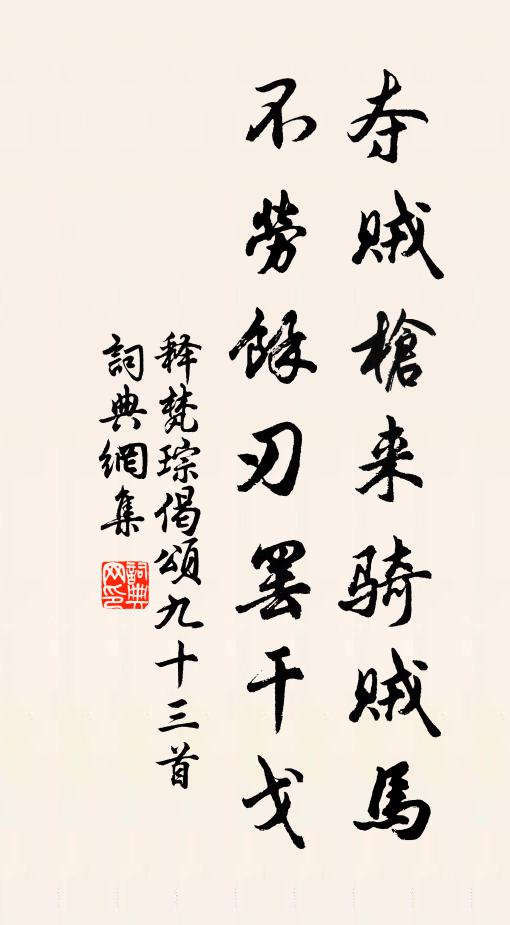 夺贼槍来骑贼馬
不勞餘刃罢干戈
释梵琮偈頌九十三首
詞典網集
詞典网印